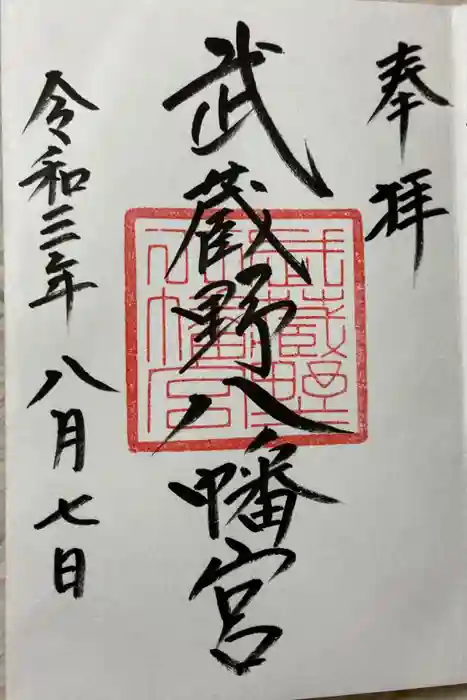 奉拝
武蔵野八幡宮
武蔵野
八幡宮
令和三年八月七日